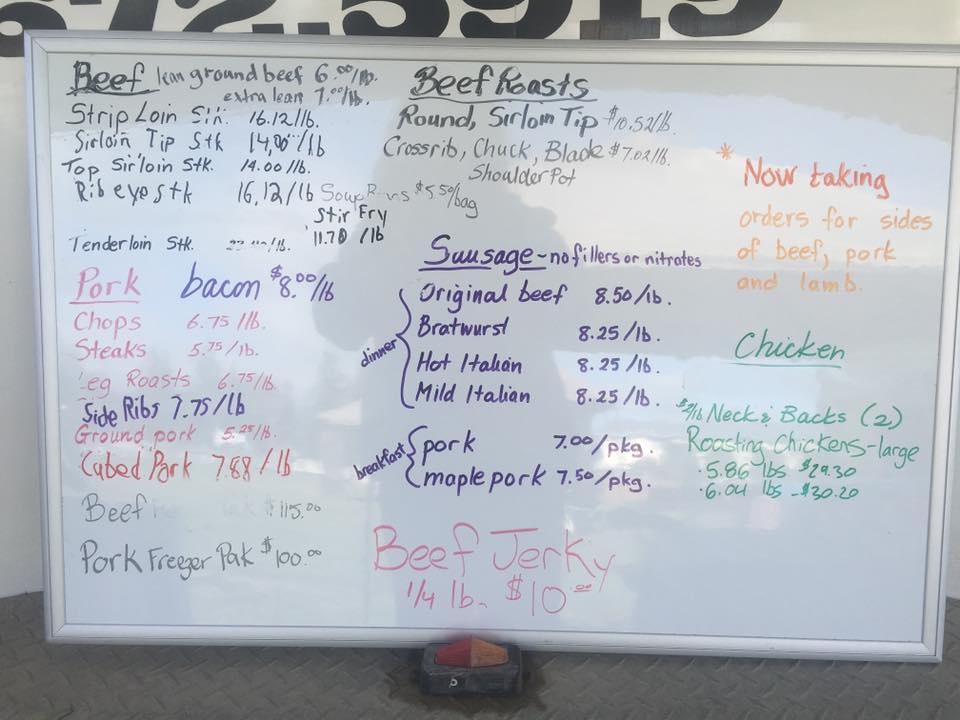 672.5919
Beef lean ground beef 6.00/lb.
extra lean 7.00/lb.
Strip Loin Stk. 16.12/lb.
Sirloin Tip Stk 14.00/lb
Top Sirloin Stk. 14.00/lb.
Rib eye stk 16.12/lb Soup $5.50/bag
Stir Fry
11.70 /lb
Tenderloin Stk. /lb.
Pork bacon $8.00/lb
Chops 6.75/lb.
Steaks 5.75/lb.
Leg Roasts 6.75/lb.
Side Ribs 7.75/lb
Ground pork 5.25/lb.
Cubed Pork 7.88/lb
Beef $115.00
Pork Freezer Pak $100.00
Beef Roasts
Round, Sirloin Tip $10.52/lb.
Crossrib, Chuck, Blade $7.02/lb.
Shoulder Pot
Sausage - no fillers or nitrates
dinner
Original beef 8.50/lb.
Bratwurst 8.25/lb.
Hot Italian 8.25/lb.
Mild Italian 8.25/lb.
breakfast
pork 7.00/pkg.
maple pork 7.50/pkg.
Beef Jerky
1/4 lb. $10.00
* Now taking
orders for sides
of beef, pork
and lamb.
Chicken
$2/lb Neck & Backs (2)
Roasting Chickens-large
·5.86 lbs $29.30
·6.04 lbs -$30.20